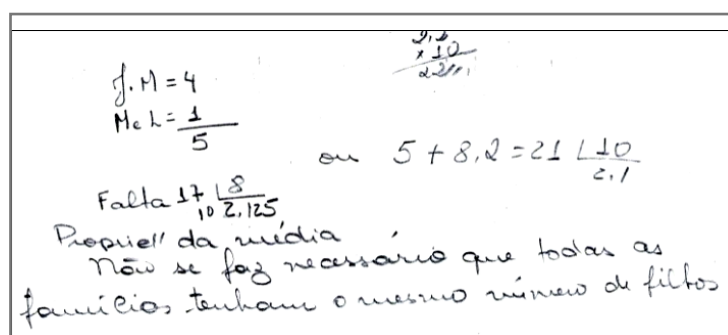 2,2
× 10
J.M = 4
M e L = 1
5
ou 5 + 8.2 = 21 | 10
2,1
Falta 17 | 8
10 2.125
Propried'' da média
Não se faz necessário que todas as
famílias tenham o mesmo número de filhos